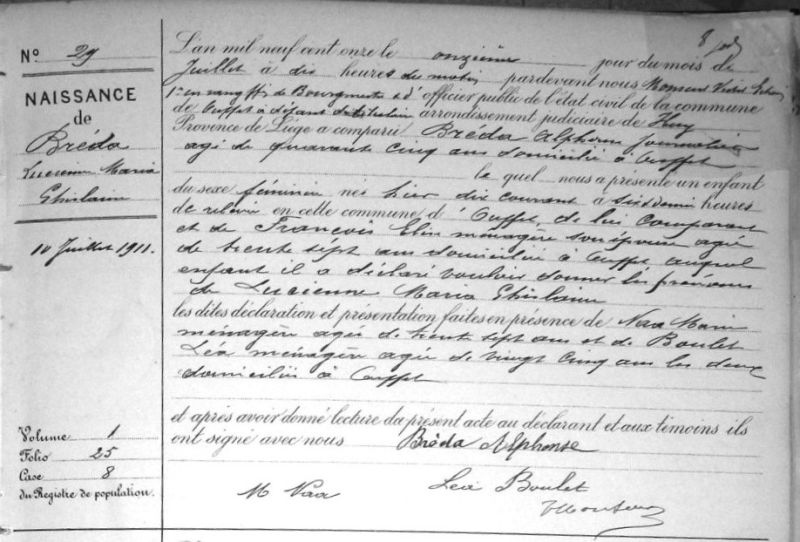 N° 29
NAISSANCE
de
Bréda
Lucienne Maria
Ghislaine
10 Juillet 1911.
Volume 1
Folio 25
Case 8
du Registre de population.
8
L'an mil neuf cent onze le onzième jour du mois de
Juillet à dix heures du matin pardevant nous
de Bourgmestre d'officier public de l'état civil de la commune
de Ouffet à défaut de titulaire arrondissement judiciaire de Huy
Province de Liége a comparu Bréda Alphonse Journalier
agé de quarante cinq ans domicilié à Ouffet
le quel nous a présenté un enfant
du sexe féminin née hier dix courant à six demi heures
de relevée en cette commune d'Ouffet de lui comparant
et de François Elise ménagère son épouse agée
de trente sept ans domiciliée à Ouffet auquel
enfant il a déclaré vouloir donner les prénoms
de Lucienne Maria Ghislaine
les dites déclaration et présentation faites en présence de Naa Marie
ménagère agée de trente sept ans et de Boulet
Léa ménagère agée de vingt cinq ans les deux
domiciliées à Ouffet
et après avoir donné lecture du présent acte au déclarant et aux témoins ils
ont signé avec nous Bréda Alphonse
M Naa Lea Boulet